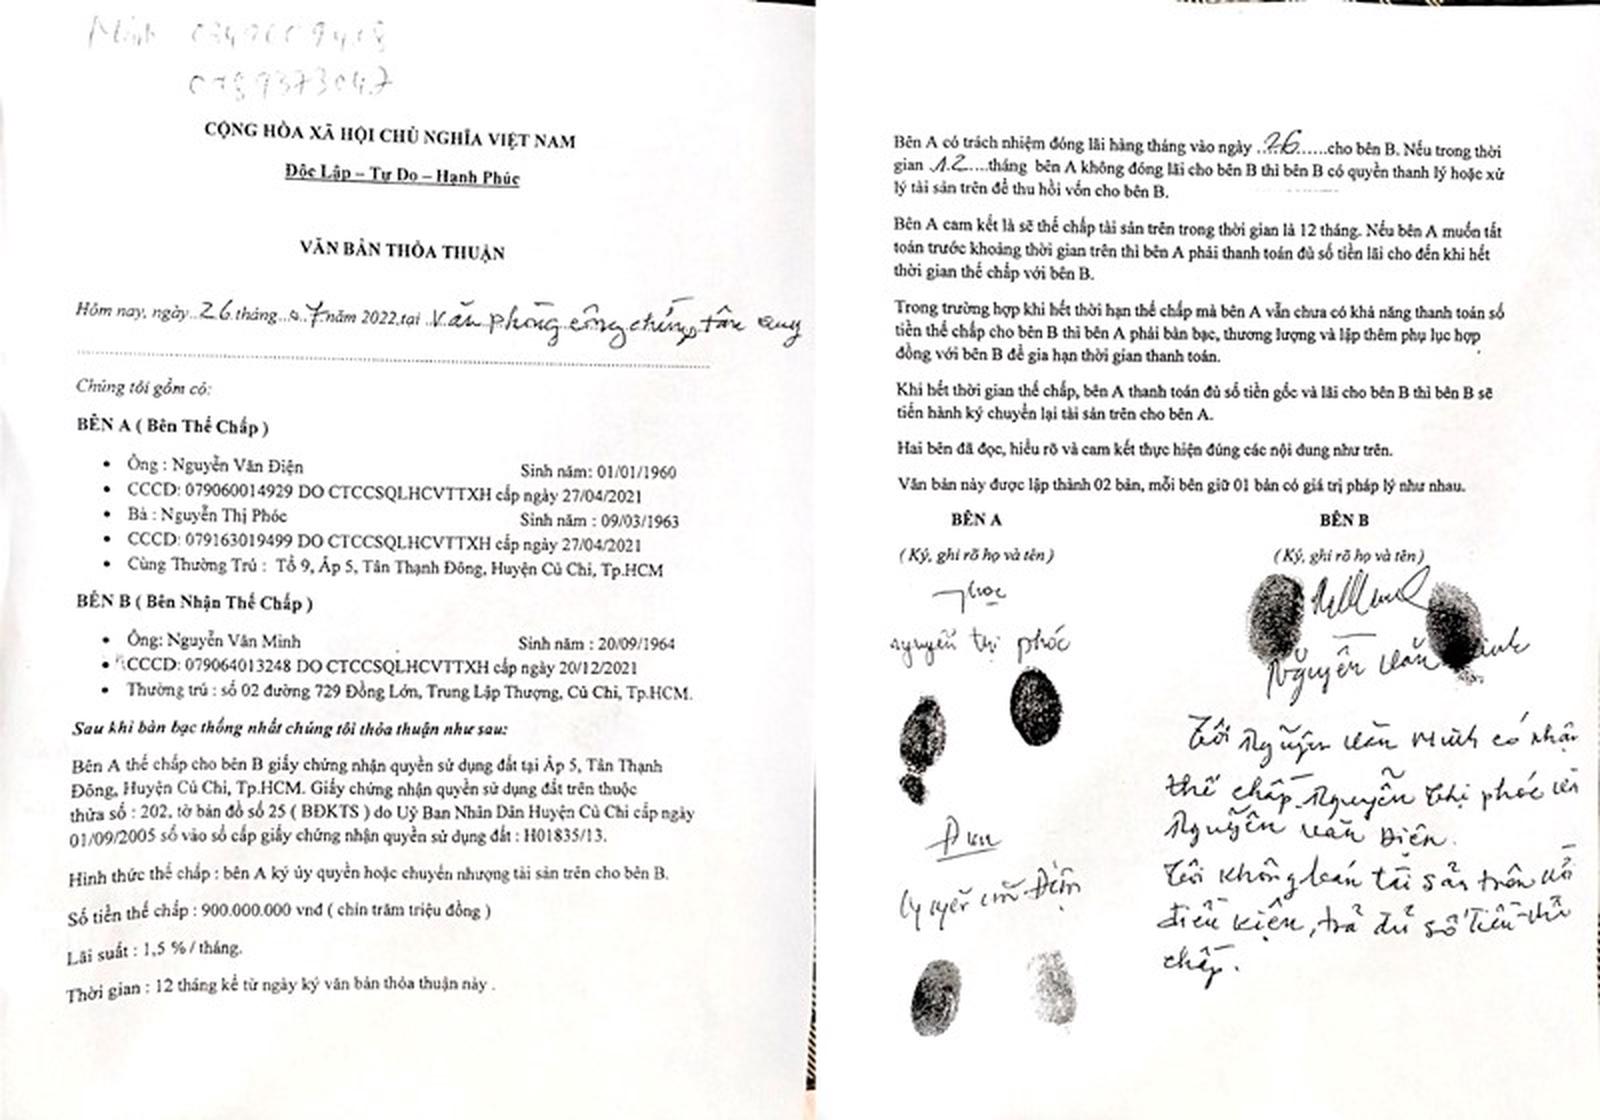 Minh
0789373047
CỘNG HÒA XÃ HỘI CHỦ NGHĨA VIỆT NAM
Độc Lập – Tự Do – Hạnh Phúc
VĂN BẢN THỎA THUẬN
Hôm nay, ngày 26 tháng 07 năm 2022, tại Văn phòng công chứng tân quy
Chúng tôi gồm có:
BÊN A ( Bên Thế Chấp )
• Ông : Nguyễn Văn Điện Sinh năm: 01/01/1960
• CCCD: 079060014929 DO CTCCSQLHCVTTXH cấp ngày 27/04/2021
• Bà : Nguyễn Thị Phóc Sinh năm : 09/03/1963
• CCCD: 079163019499 DO CTCCSQLHCVTTXH cấp ngày 27/04/2021
• Cùng Thường Trú : Tổ 9, Ấp 5, Tân Thạnh Đông, Huyện Củ Chi, Tp.HCM
BÊN B ( Bên Nhận Thế Chấp )
• Ông: Nguyễn Văn Minh Sinh năm : 20/09/1964
• CCCD: 079064013248 DO CTCCSQLHCVTTXH cấp ngày 20/12/2021
• Thường trú : số 02 đường 729 Đồng Lớn, Trung Lập Thượng, Củ Chi, Tp.HCM.
Sau khi bàn bạc thống nhất chúng tôi thỏa thuận như sau:
Bên A thế chấp cho bên B giấy chứng nhận quyền sử dụng đất tại Ấp 5, Tân Thạnh
Đông, Huyện Củ Chi, Tp.HCM. Giấy chứng nhận quyền sử dụng đất trên thuộc
thửa số : 202, tờ bản đồ số 25 ( BĐKTS ) do Uỷ Ban Nhân Dân Huyện Củ Chi cấp ngày
01/09/2005 số vào sổ cấp giấy chứng nhận quyền sử dụng đất : H01835/13.
Hình thức thế chấp : bên A ký ủy quyền hoặc chuyển nhượng tài sản trên cho bên B.
Số tiền thế chấp : 900.000.000 vnđ ( chín trăm triệu đồng )
Lãi suất : 1,5 % / tháng.
Thời gian : 12 tháng kể từ ngày ký văn bản thỏa thuận này .
Bên A có trách nhiệm đóng lãi hàng tháng vào ngày 26 cho bên B. Nếu trong thời
gian 12 tháng bên A không đóng lãi cho bên B thì bên B có quyền thanh lý hoặc xử
lý tài sản trên để thu hồi vốn cho bên B.
Bên A cam kết là sẽ thế chấp tài sản trên trong thời gian là 12 tháng. Nếu bên A muốn tất
toán trước khoảng thời gian trên thì bên A phải thanh toán đủ số tiền lãi cho đến khi hết
thời gian thế chấp với bên B.
Trong trường hợp khi hết thời hạn thế chấp mà bên A vẫn chưa có khả năng thanh toán số
tiền thế chấp cho bên B thì bên A phải bàn bạc, thương lượng và lập thêm phụ lục hợp
đồng với bên B để gia hạn thời gian thanh toán.
Khi hết thời gian thế chấp, bên A thanh toán đủ số tiền gốc và lãi cho bên B thì bên B sẽ
tiến hành ký chuyển lại tài sản trên cho bên A.
Hai bên đã đọc, hiểu rõ và cam kết thực hiện đúng các nội dung như trên.
Văn bản này được lập thành 02 bản, mỗi bên giữ 01 bản có giá trị pháp lý như nhau.
BÊN A BÊN B
( Ký, ghi rõ họ và tên ) ( Ký, ghi rõ họ và tên )
nguyễn thị phóc
Nguyễn Văn Minh
Tôi Nguyễn Văn Minh có nhận
thế chấp Nguyễn Thị phóc và
Nguyễn Văn Điên.
Tôi không bán tài sản trên với
điều kiện, trả đủ số tiền thế
chấp.
Nguyễn văn Điện